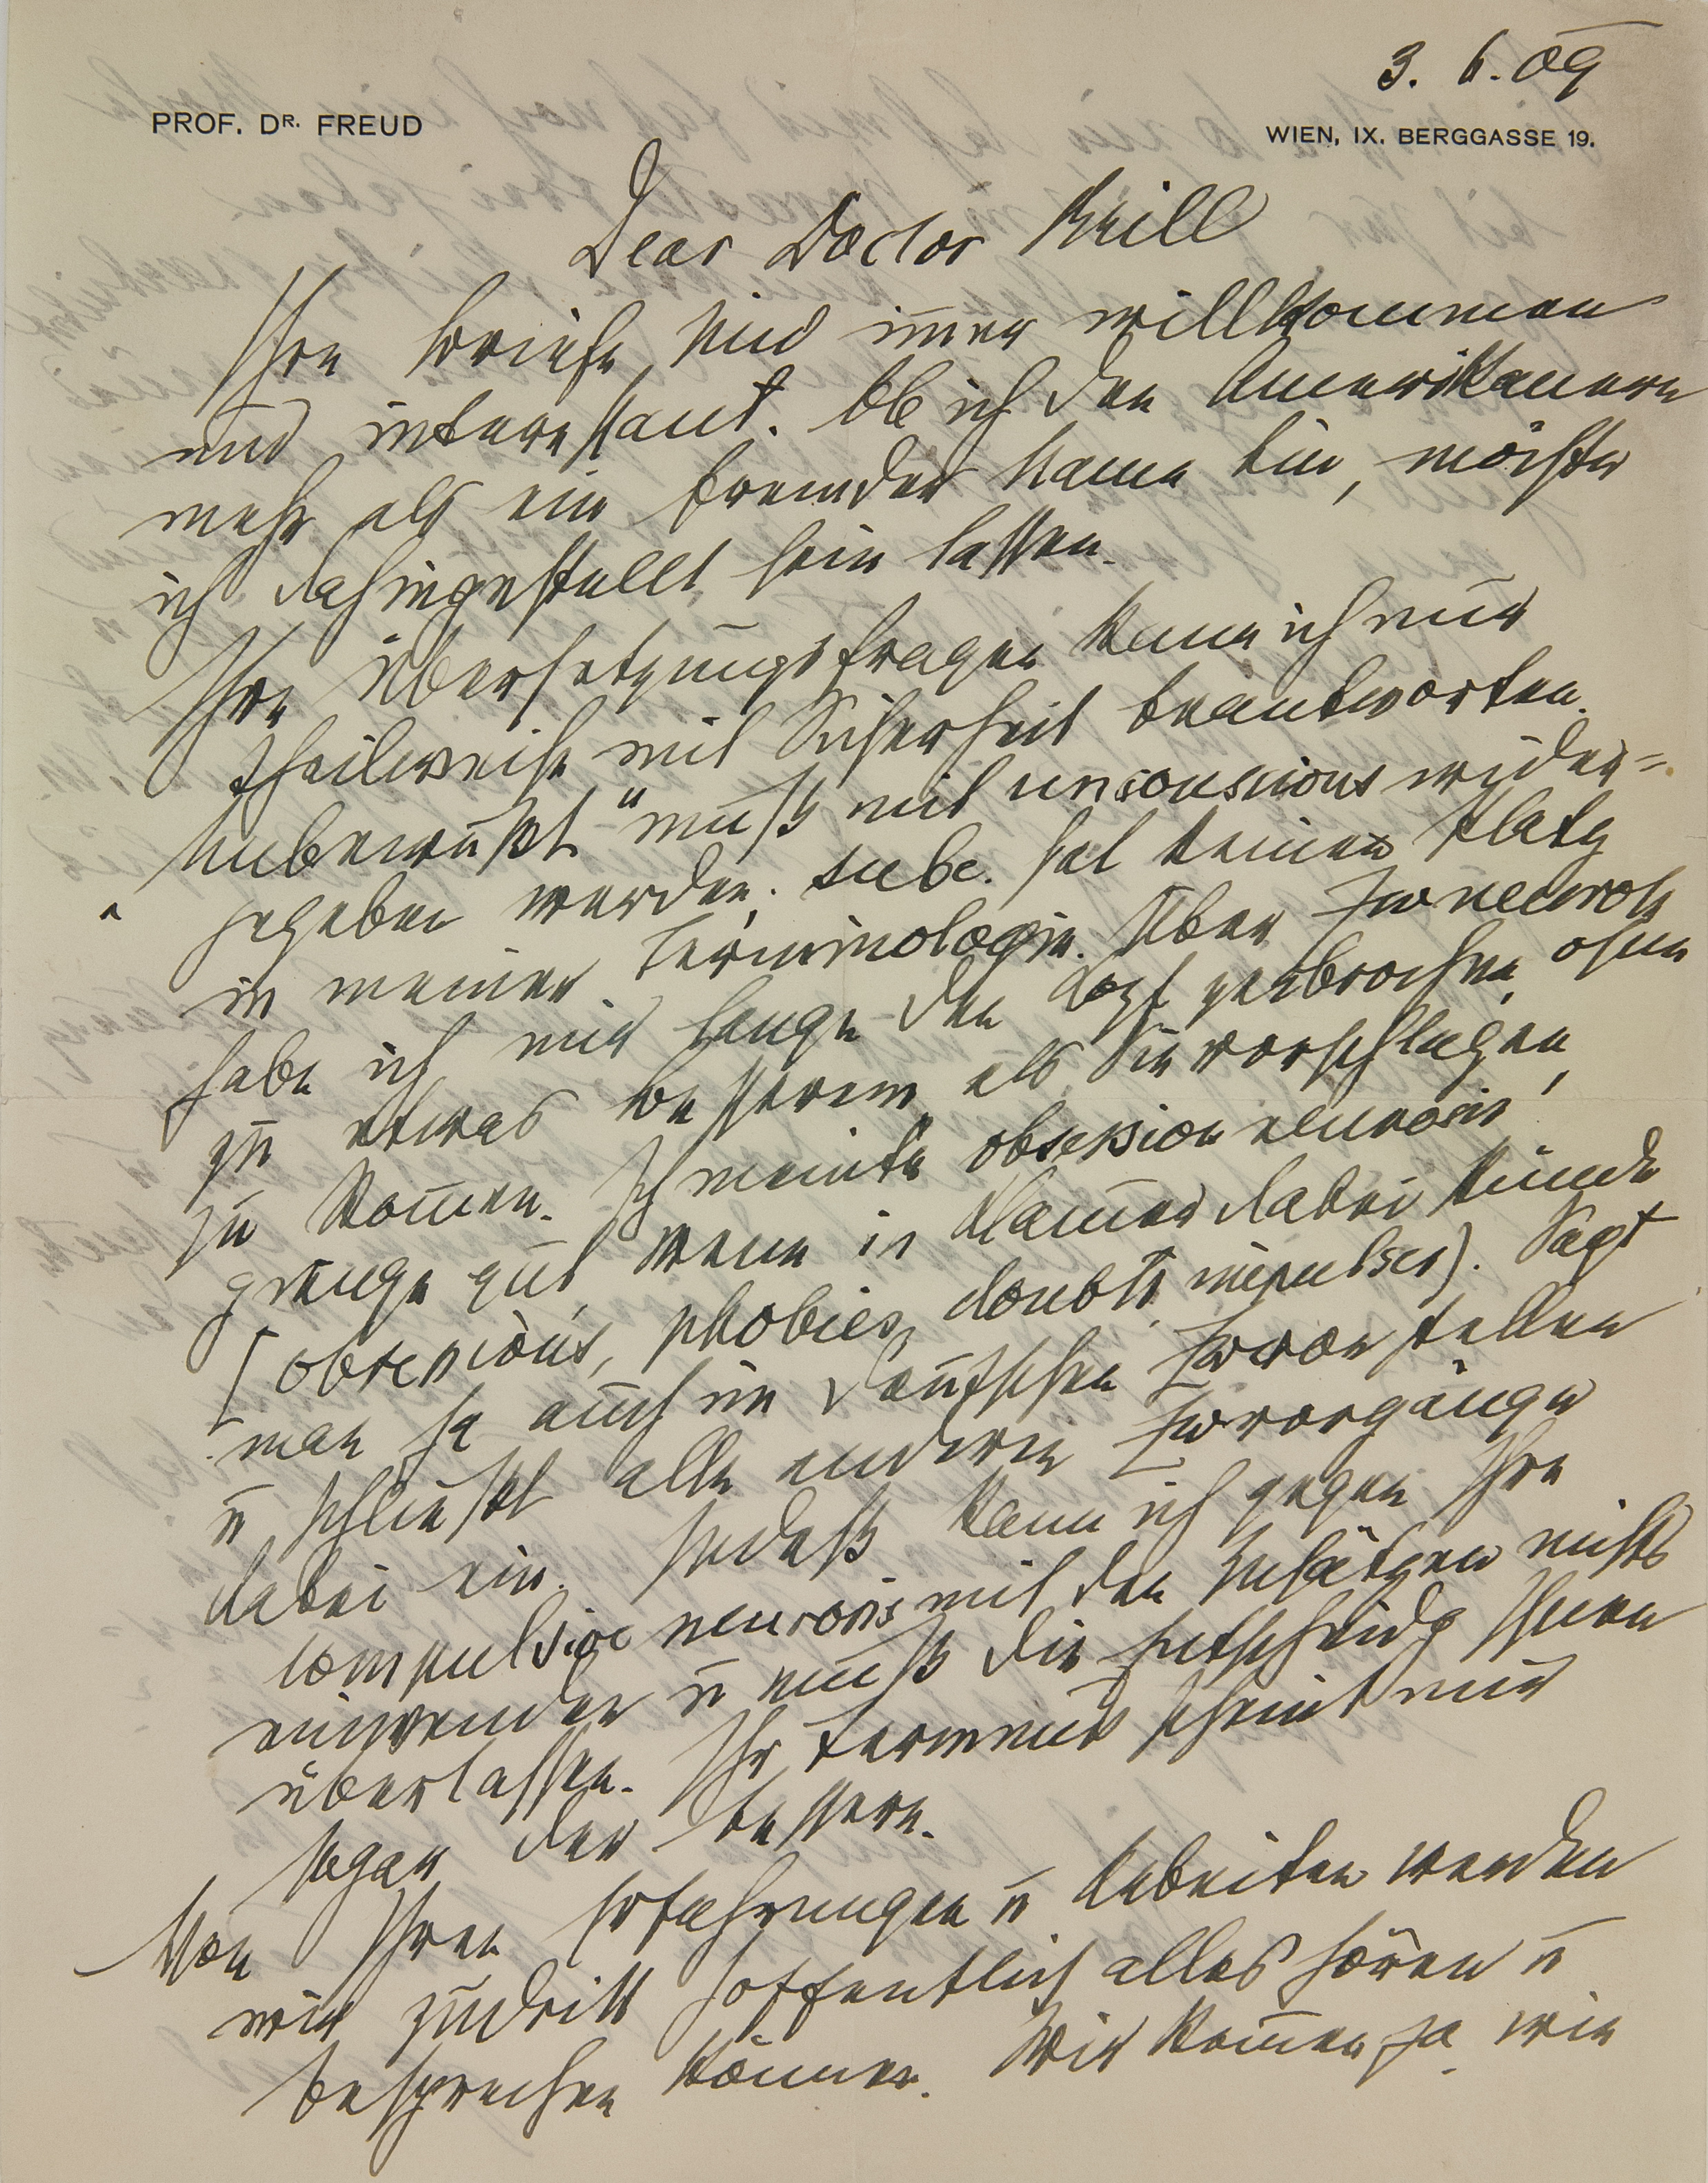 3. 6. 09
PROF. DR. FREUD
WIEN, IX. BERGGASSE 19.
Dear Doctor Brill
Ihre Briefe sind im̄er willkommen
und interessant. Ob ich den Amerikanern
mehr als ein fremder Name bin, möchte
ich dahingestellt sein lassen.
Ihre Übersetzungsfragen kann ich nur
theilweise mit Sicherheit beantworten.
„Unbewußt“ muß mit unconscious wieder=
gegeben werden; subc. hat keinen Platz
in meiner Terminologie. Über Zwneurose
habe ich mir lange den Kopf zerbrochen, ohne
zu etwas besserem, als Sie vorschlagen,
zu kom̄en. Ich meinte obsession neurosis
ginge gut, wenn in Klam̄er dabei stünde
(obsessions, phobies, doubts, impulses). Sagt
man ja auch im Deutschen Zwvorstellen
ū schließt alle anderen Zwvorgänge
dabei ein. Indeß kann ich gegen Ihre
compulsion neurosis mit den Zusätzen nichts
einwenden ū muß die Entscheidg Ihnen
überlassen. Ihr Terminus scheint mir
sogar der bessere.
Von Ihren Erfahrungen ū Arbeiten werden
wir zudritt hoffentlich alles hören ū
besprechen können. Wir kom̄en ja wie